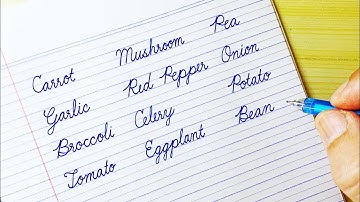 Carrot Mushroom Pea
Garlic Red Pepper Onion
Broccoli Celery Potato
Tomato Eggplant Bean